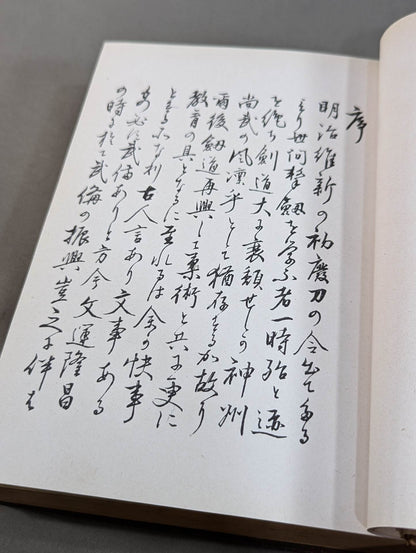 序
明治維新の初廢刀の令出てゝ
より世間撃劔を学ふ者一時殆と迹
を絶ち剣道大に衰頽せしか神州
尚武の風凛乎として猶存せるか故
爾後劔道再興して柔術と共に更に
教育の具となるに至れるは余の快事
とする所なり古人言あり文事ある
者必す武備ありと方今文運隆昌
の時に於て武備の振興豈之に伴は